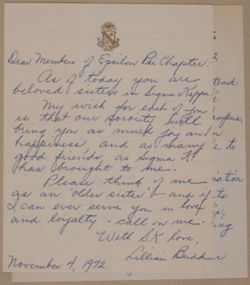 Dear Members of Epsilon Psi Chapter:
As of today you are
beloved sisters in Sigma Kappa.
My wish for each of you
is that our sorority will
bring you as much joy and
happiness, and as many
good friends, as Sigma K
has brought to me.
Please think of me
as an "older sister" and if
I can ever serve you in love
and loyalty - call on me.
With S K love,
Lillian
November 4, 1972.